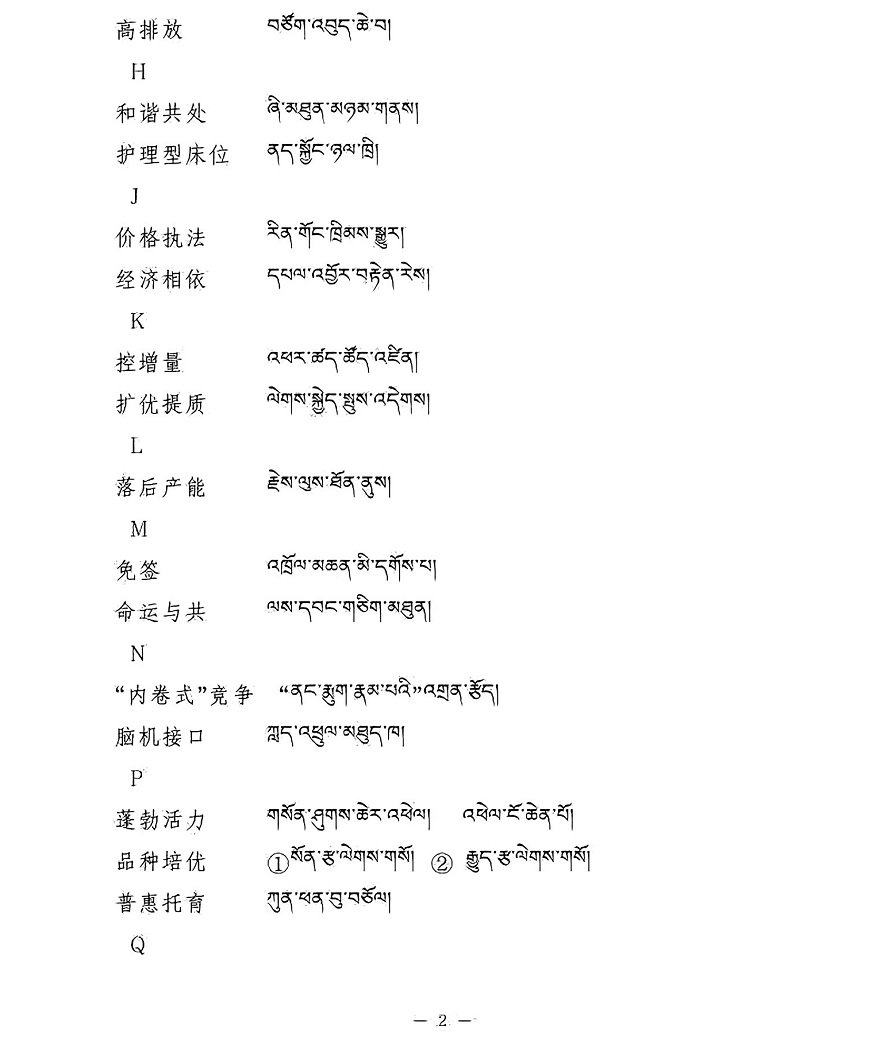 高排放 བཙོག་འབུད་ཆེ་བ།
H
和谐共处 ཞི་མཐུན་མཉམ་གནས།
护理型床位 ནད་སྐྱོང་ཉལ་ཁྲི།
J
价格执法 རིན་གོང་ཁྲིམས་སྒྱུར།
经济相依 དཔལ་འབྱོར་བརྟེན་རེས།
K
控增量 འཕར་ཚད་ཚོད་འཛིན།
扩优提质 ལེགས་སྐྱེད་སྤུས་འདེགས།
L
落后产能 རྗེས་ལུས་ཐོན་ནུས།
M
免签 འཁྲོལ་མཆན་མི་དགོས་པ།
命运与共 ལས་དབང་གཅིག་མཐུན།
N
“内卷式”竞争 “ནང་རྨུག་རྣམ་པའི”འགྲན་རྩོད།
脑机接口 ཀླད་འཕྲུལ་མཐུད་ཁ།
P
蓬勃活力 གསོན་ཤུགས་ཆེར་འཕེལ། འཕེལ་ངོ་ཆེན་པོ།
品种培优 ①སོན་རྩ་ལེགས་གསོ། ② རྒྱུད་རྩ་ལེགས་གསོ།
普惠托育 ཀུན་ཕན་བུ་བཅོལ།
Q
— 2 —